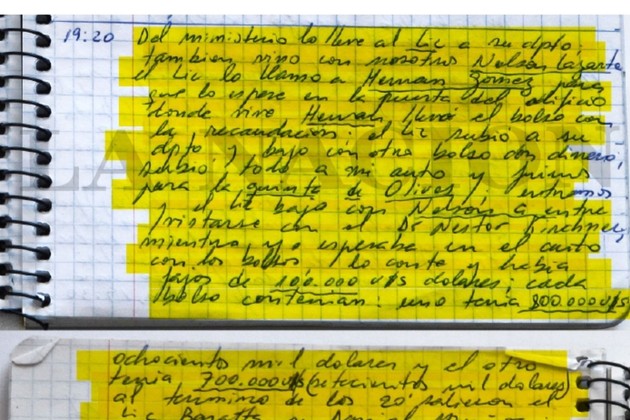 19:20 Del ministerio lo lleve al Lic a su dpto
tambien vino con nosotros Nelson Lazarte
el Lic lo llamo a Hernan Gomez para
que lo espere en la puerta del edificio
donde vive Hernan, llevó el bolso con
la recaudacion; el Lic subió a su
dpto. y bajo con otro bolso con dinero,
subio todo a mi auto y fuimos
para la quinta de Olivos; entramos
y el Lic bajo con Nelson a entre
vistarse con el Dr Nestor Kirchner,
mientras yo esperaba en el auto
con los bolsos, lo conte y habia
fajos de 100.000 U$S dolares; cada
bolso contenian: uno tenia 800.000 U$S
ochocientos mil dolares y el otro
tenia 700.000 U$S (setecientos mil dolares)
al termino de los 20' salieron el
Lic Baratta
LA NACION